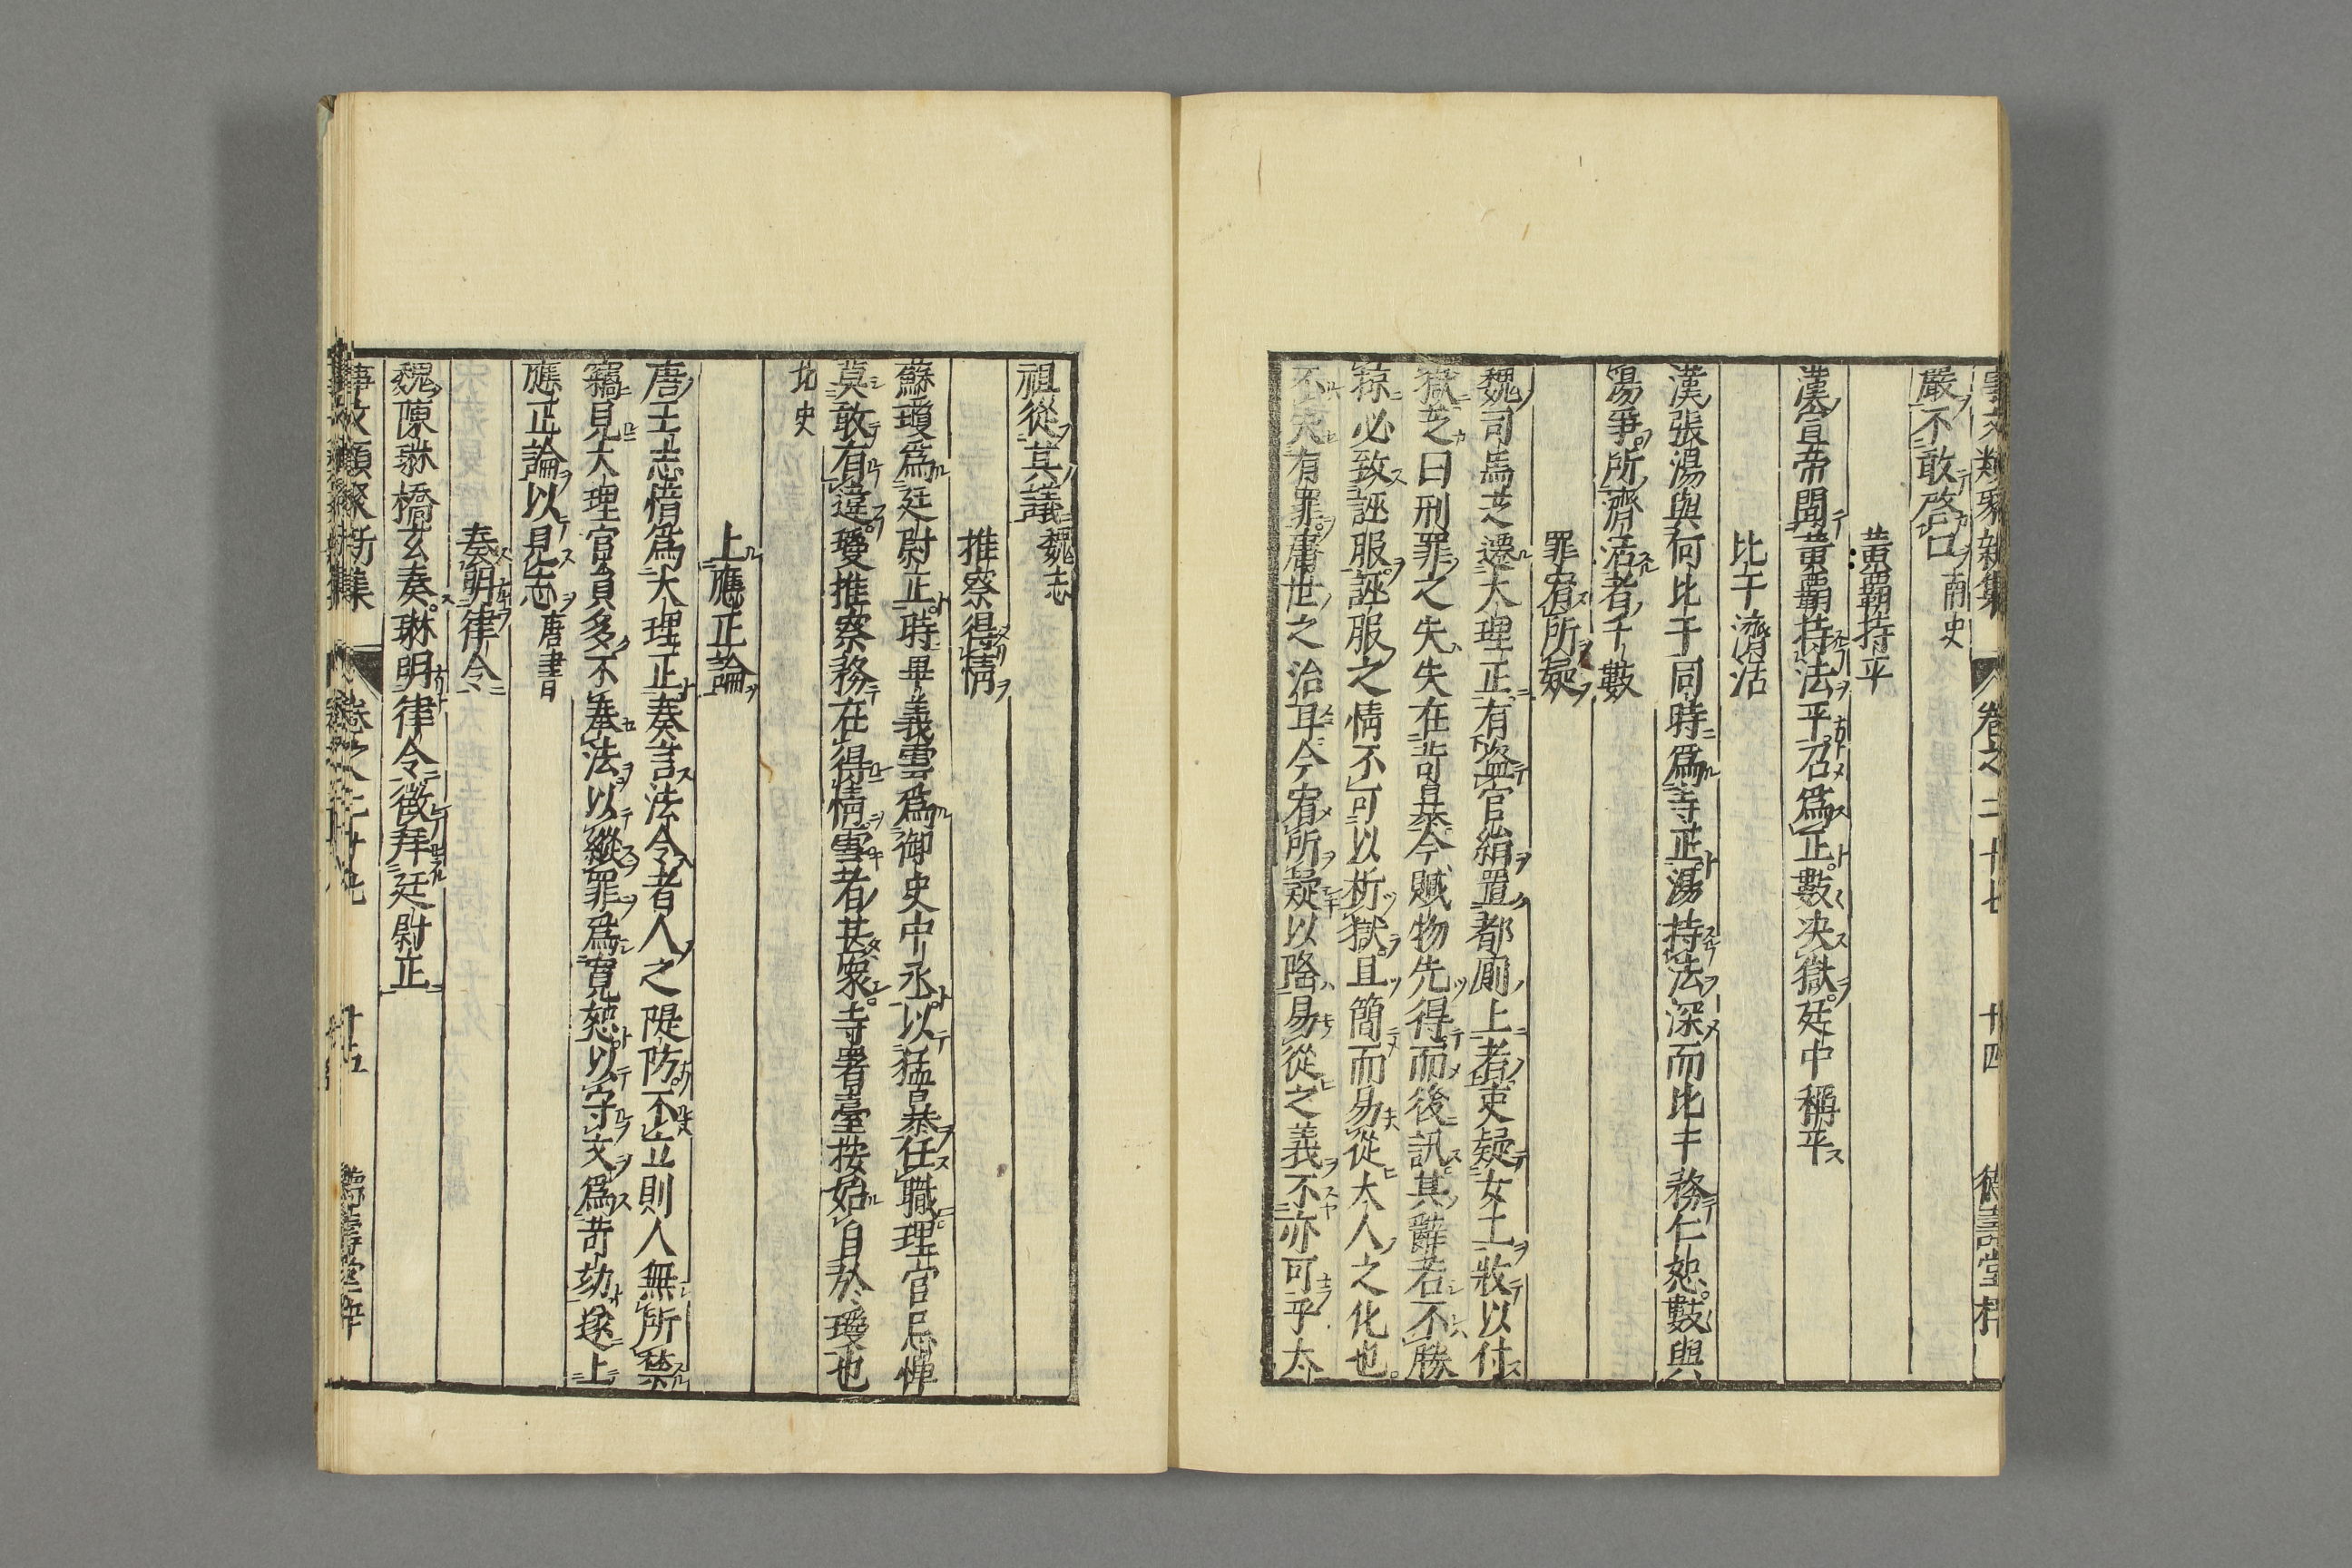 事文類聚新集 卷之二十七 廿四 德壽堂梓
嚴不敢啓口南史
黃覇持平
漢宣帝聞黃覇持法平召爲正數决獄廷中稱平
比干濟活
漢張湯與何比干同時爲寺正湯持法深而比干務仁恕數與
湯爭所濟活者千數
罪宥所疑
魏司馬芝遷大理正有盗官絹置都厠上者吏疑女工收以付
獄芝曰刑罪之失失在苛暴今贓物先得而後訊其辭若不勝
掠必致誣服誣服之情不可以折獄且簡而易從大人之化也
不失有罪庸世之治耳今宥所疑以隆易從之義不亦可乎太
祖從其議魏志
推察得情
蘇瓊爲廷尉正時畢義雲爲御史中丞以猛暴任職理官忌憚
莫敢有違瓊推察務在得情雪者甚衆寺署臺按始自於瓊也
北史
上應正論
唐王志愔爲大理正奏言法令者人之隄防不立則人無所禁
竊見大理官員多不奉法以縱罪爲寬恕以守文爲苛劾遂上
應正論以見志唐書
奏明律令
魏陳琳橋玄奏琳明律令徵拜廷尉正
事文類聚新集 卷之二十七 廿五 德壽堂梓